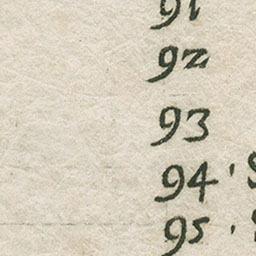 91
92
93
94.
95.